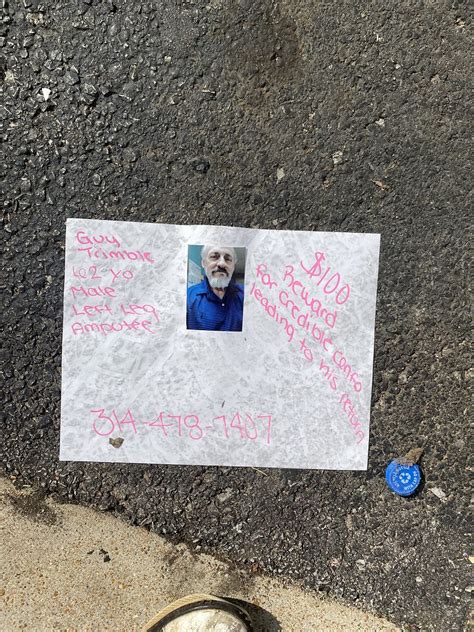 Guy
Trimble
62 yo
Male
Left Leg
Amputee
$100
Reward
For Credible info
leading to his return
314-478-7407